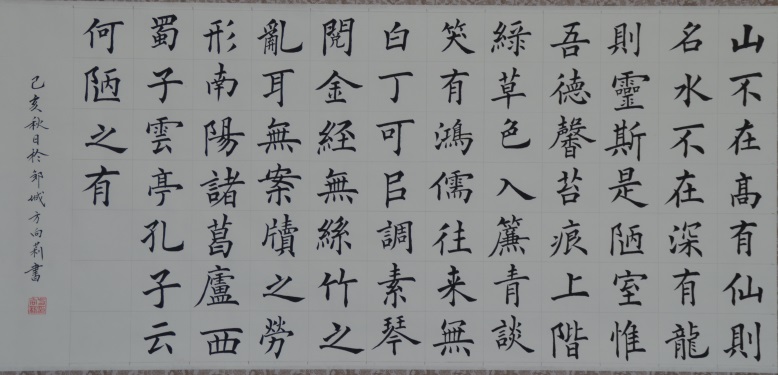 山不在髙有仙則
名水不在深有龍
則靈斯是陋室惟
吾德馨苔痕上階
綠草色入簾青談
笑有鴻儒往来無
白丁可㠯調素琴
閱金經無絲竹之
亂耳無案牘之勞
形南陽諸葛廬西
蜀子雲亭孔子云
何陋之有
己亥秋日於邾城方向莉書